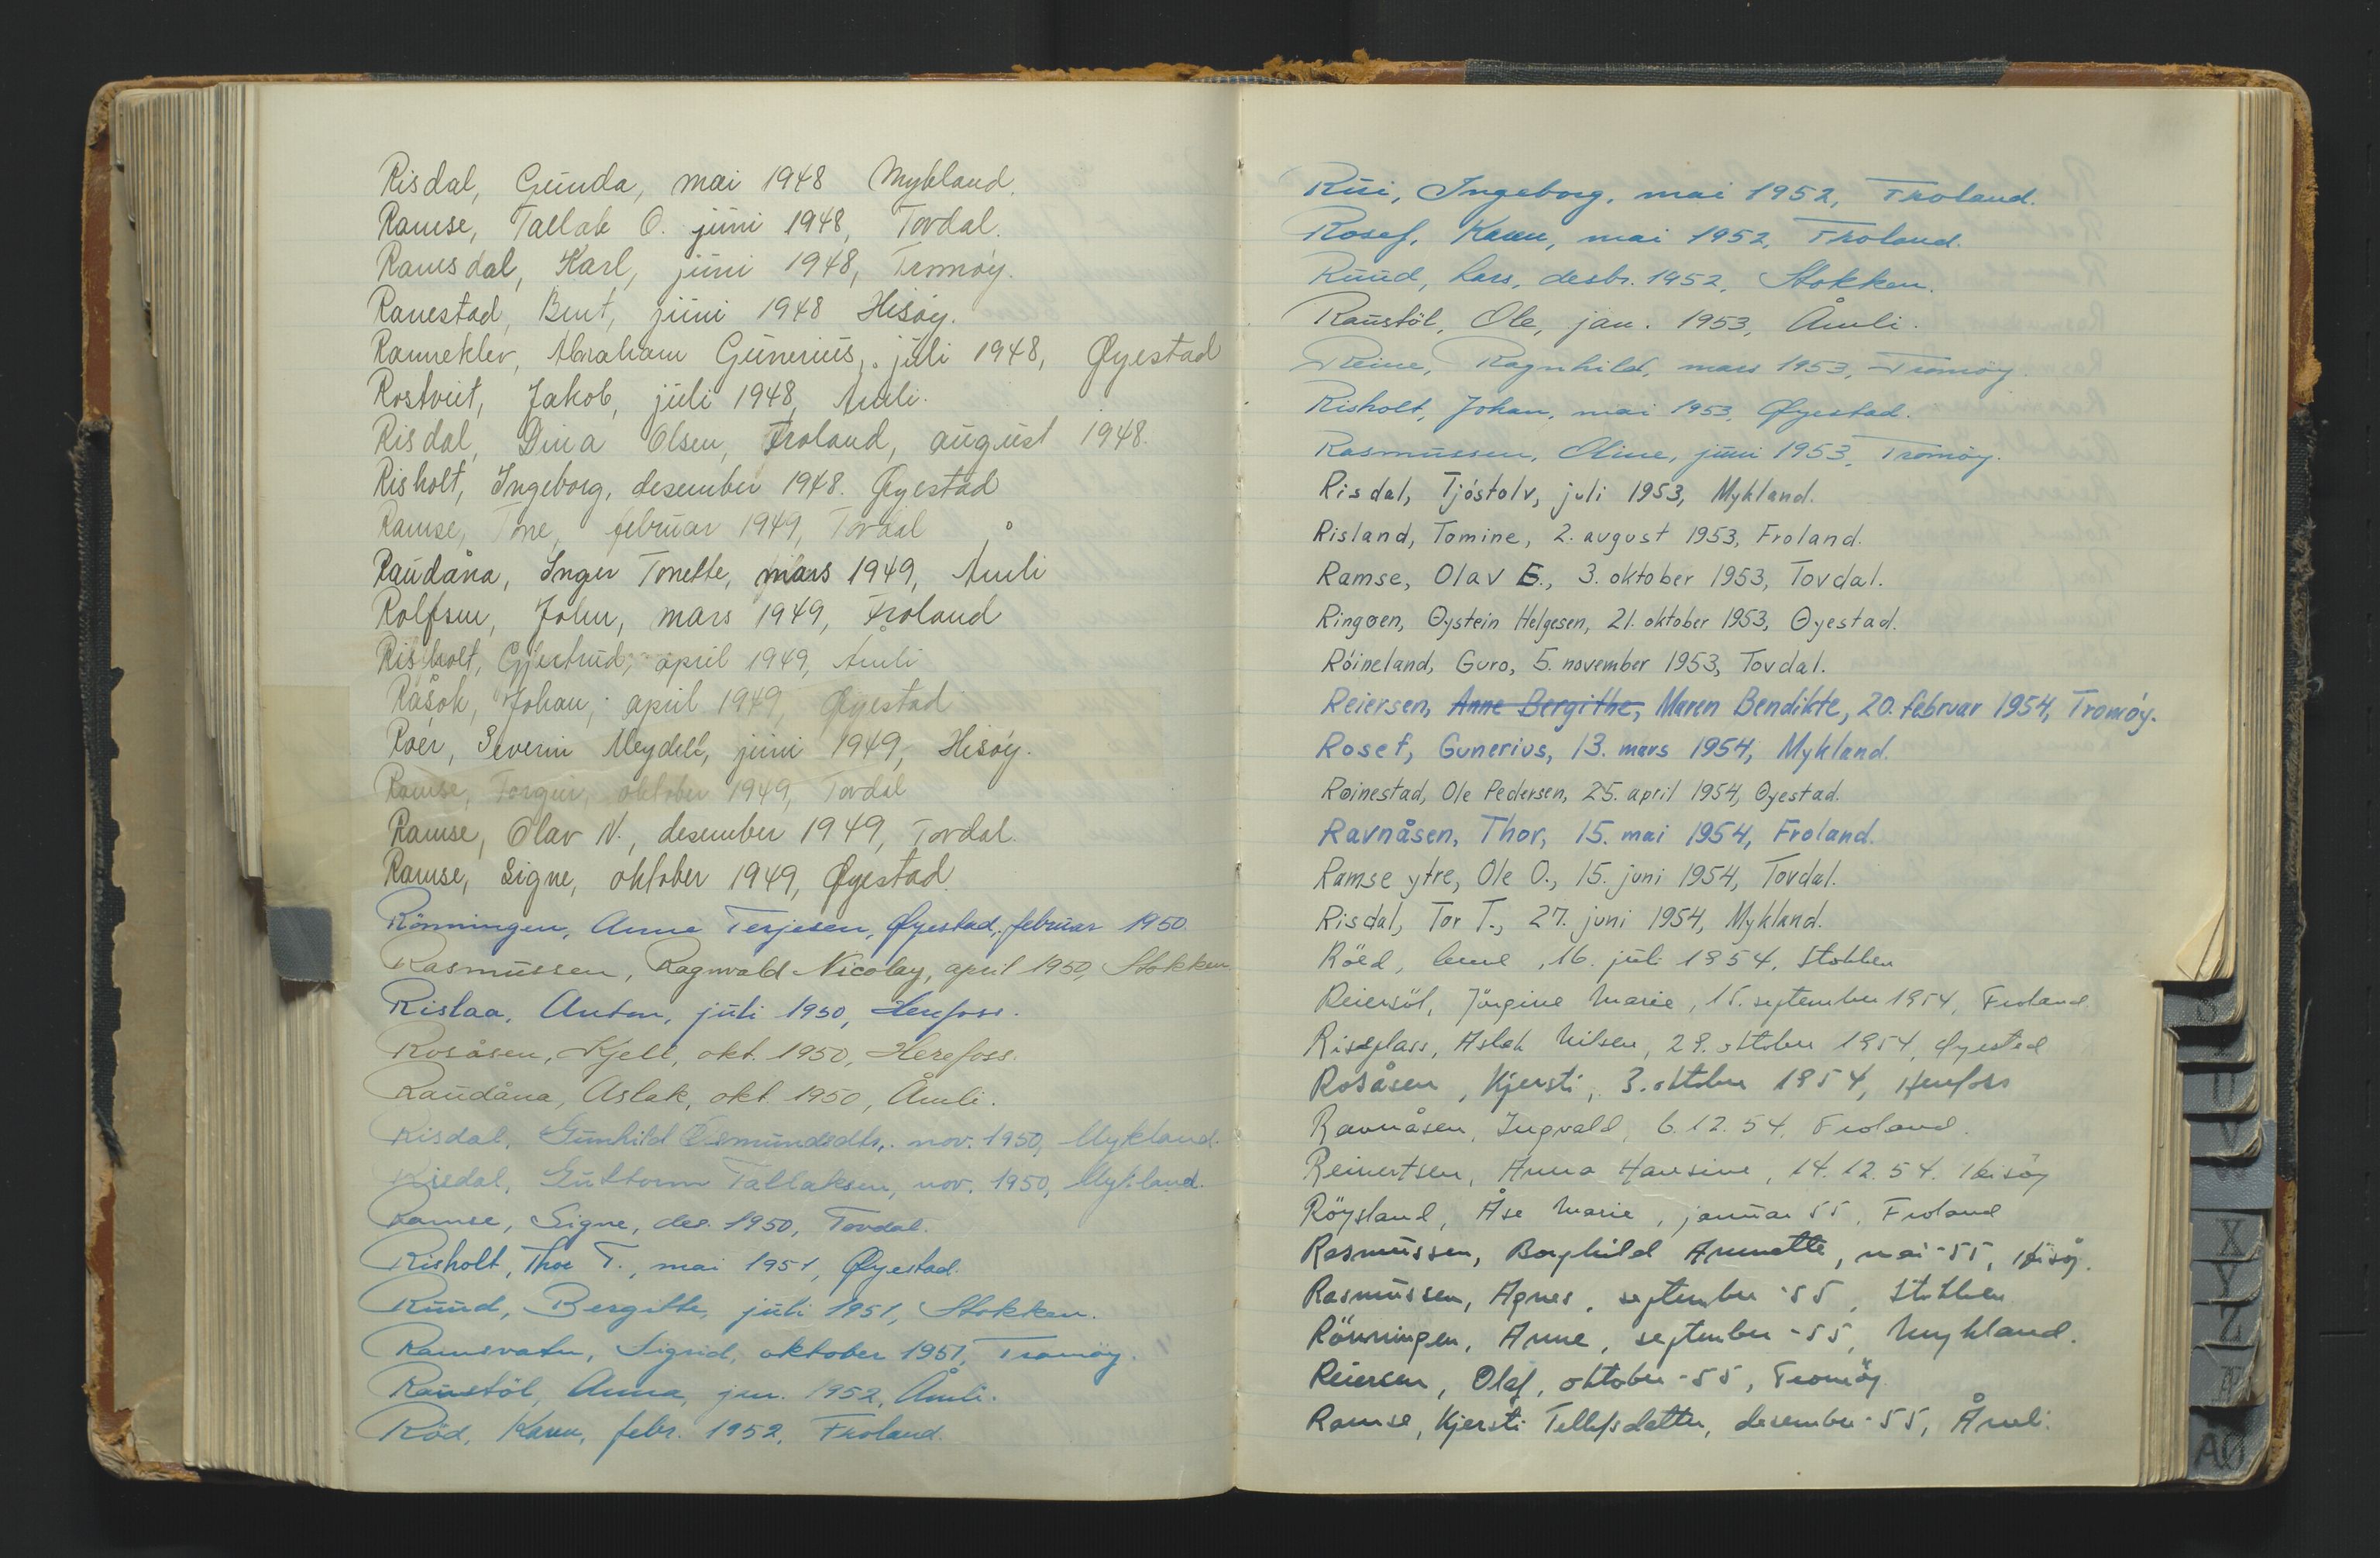 Risdal, Gunda, mai 1948 Mykland.
Ramse, Tallak O. juni 1948, Tovdal.
Ramsdal, Karl, juni 1948, Tromøy.
Ranestad, Bent, juni 1948 Hisøy.
Ranneklev, Abraham Gunerius, juli 1948, Øyestad
Rostveit, Jakob, juli 1948, Åmli.
Risdal, Dina Olsen, Froland, august 1948.
Risholt, Ingeborg, desember 1948. Øyestad
Ramse, Tone, februar 1949, Tovdal
Raudåna, Inger Tonette, mars 1949, Åmli
Rolfsen, John, mars 1949, Froland
Risholt, Gjertrud, april 1949, Åmli
Råsok, Johan, april 1949, Øyestad
Roér, Severin Meydell, juni 1949, Hisøy.
Ramse, Torgur, oktober 1949, Tovdal
Ramse, Olav N., desember 1949, Tovdal.
Ramse, Signe, oktober 1949, Øyestad.
Rönningen, Anne Terjesen, Øyestad, februar 1950.
Rasmussen, Ragnvald Nicolay, april 1950, Stokken
Rislaa, Anton, juli 1950, Herefoss.
Rosåsen, Kjell, okt. 1950, Herefoss.
Raudåna, Aslak, okt. 1950, Åmli.
Risdal, Gunhild Osmundsdtr, nov. 1950, Mykland.
Risdal, Guttorm Tallaksen, nov. 1950, Mykland.
Ramse, Signe, des. 1950, Tovdal.
Risholt, Thor T., mai 1951, Øyestad.
Ruud, Bergitte, juli 1951, Stokken.
Ramsvatn, Sigrid, oktober 1951, Tromöy.
Raustöl, Anna, jan. 1952, Åmli.
Röd, Karen, febr. 1952, Froland.
Rui, Ingeborg, mai 1952, Froland.
Rosef, Karen, mai 1952, Froland.
Ruud, Lars, desbr. 1952, Stokken.
Raustöl, Ole, jan. 1953, Åmli.
Reine, Ragnhild, mars 1953, Tromöy.
Risholt, Johan, mai 1953, Øyestad.
Rasmussen, Oline, juni 1953, Tromöy.
Risdal, Tjóstolv, juli 1953, Mykland.
Risland, Tomine, 2. august 1953, Froland.
Ramse, Olav E., 3. oktober 1953, Tovdal.
Ringøen, Øystein Helgesen, 21. oktober 1953, Øyestad.
Róineland, Guro, 5. november 1953, Tovdal.
Reiersen, Anne Bergithe, Maren Bendikte, 20. februar 1954, Tromóy.
Rosef, Gunerius, 13. mars 1954, Mykland.
Røinestad, Ole Pedersen, 25. april 1954, Øyestad.
Ravnåsen, Thor, 15. mai 1954, Froland.
Ramse ytre, Ole O., 15. juni 1954, Tovdal.
Risdal, Tor T., 27. juni 1954, Mykland.
Röed, , 16. juli 1954, Stokken
Reiersöl, Jörgine Marie, 15. september 1954, Froland.
Riseplass, Aslak Nilsen, 29. oktober 1954, Øyestad
Rosåsen, Kjersti, 3. oktober 1954, Herefoss
Ravnåsen, Ingvald, 6.12.54, Froland.
Reinertsen, Anna Hansine, 14.12.54. Hisöy
Röysland, Åse Marie, januar 55, Froland
Rasmussen, Borghild Annette, mai -55, Hisöy.
Rasmussen, Agnes, september -55, Stokken
Rönningen, Anne, september -55, Mykland.
Reiersen, Olaf, oktober -55, Tromöy.
Ramse, Kjersti Tellefsdatter, desember -55, Åmli.
U
V
W
X
Y
Z
Æ
AØ